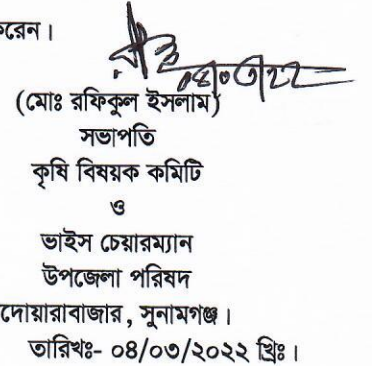 করেন।
০৪/০৩/২২
(মোঃ রফিকুল ইসলাম)
সভাপতি
কৃষি বিষয়ক কমিটি
ও
ভাইস চেয়ারম্যান
উপজেলা পরিষদ
দোয়ারাবাজার, সুনামগঞ্জ।
তারিখঃ- ০৪/০৩/২০২২ খ্রিঃ।